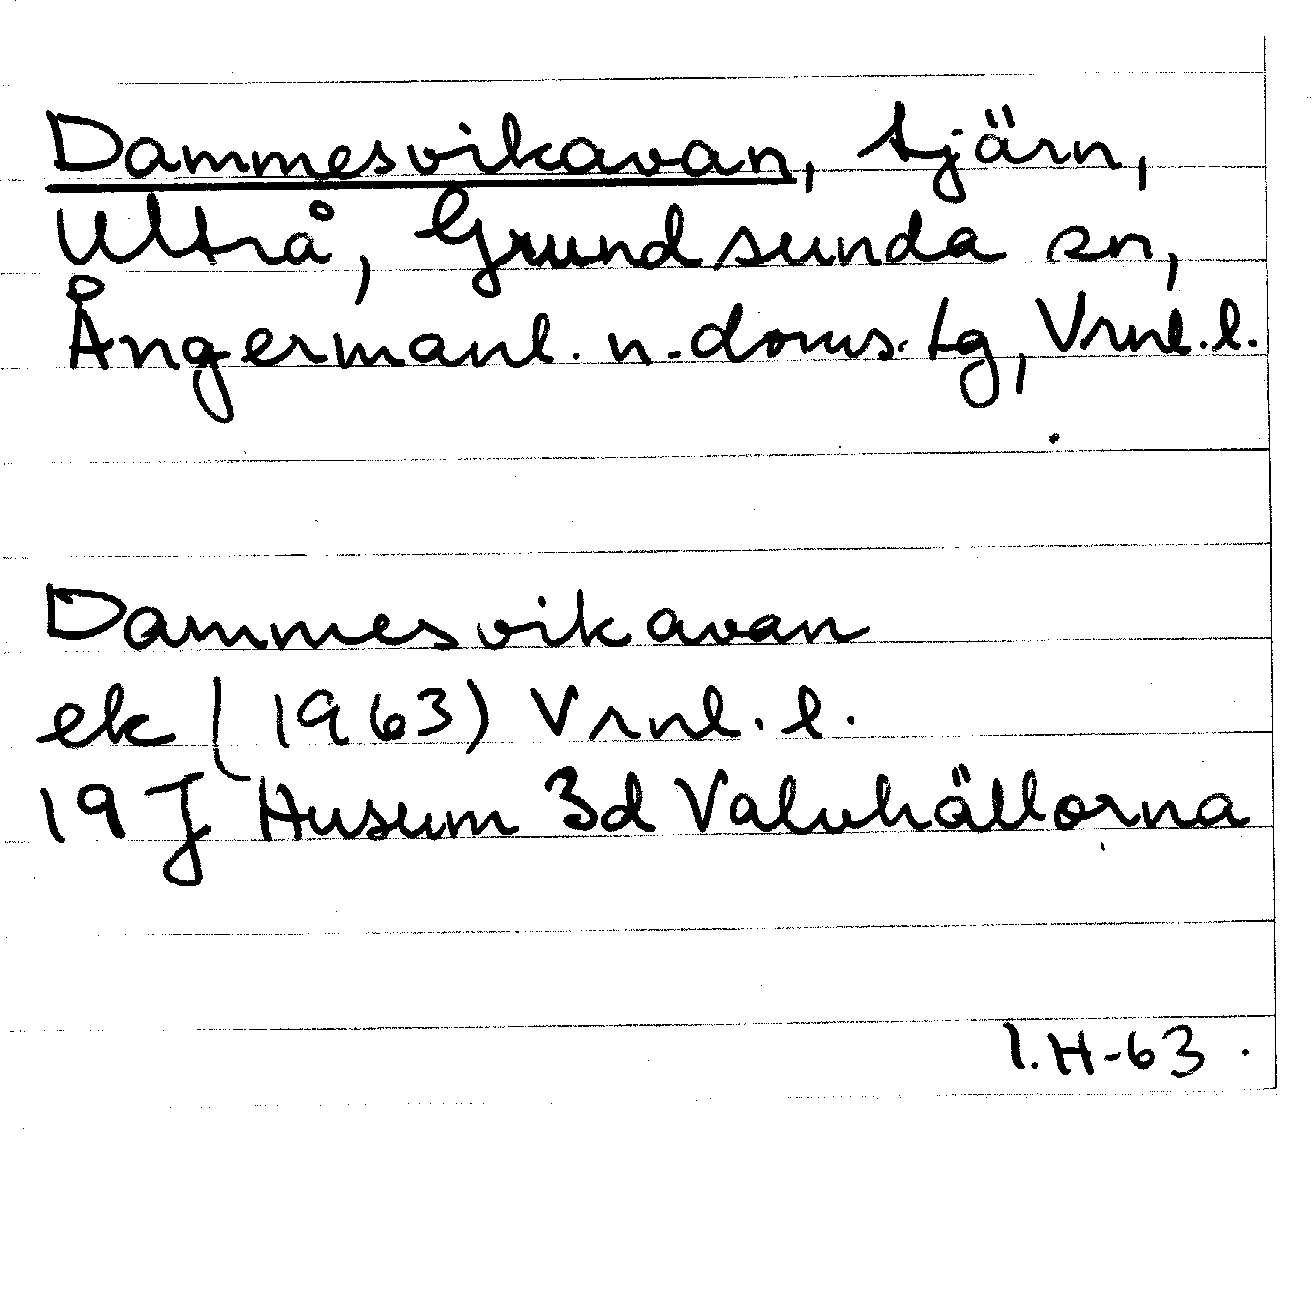 Dammesvikavan, tjärn,
Ultrå, Grundsunda sn,
Ångermanl. n. doms. tg, Vrnl. l.
Dammesvikavan
ek (1963) Vrnl. l.
19 J Husum 3d Valuhällorna
I. H-63.